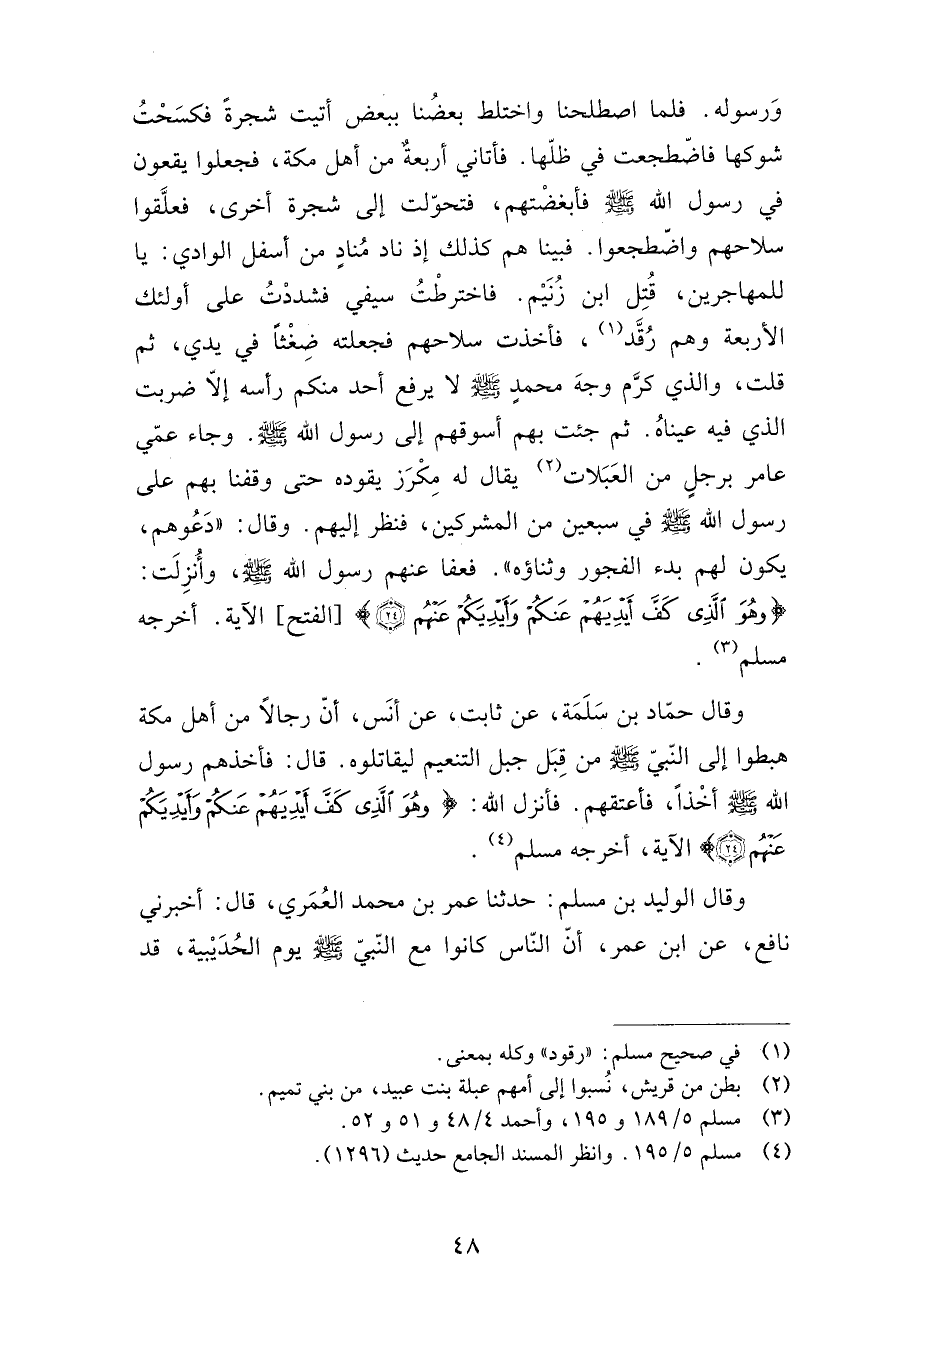 وَرسوله. فلما اصطلحنا واختلط بعضُنا ببعض أتيت شجرةً فكسَحْتُ
شوكها فاضّطجعت في ظلّها. فأتاني أربعةٌ من أهل مكة، فجعلوا يقعون
في رسول الله ﷺ فأبغضْتهم، فتحوّلت إلى شجرة أخرى، فعلَّقوا
سلاحهم واضّطجعوا. فبينا هم كذلك إذ ناد مُنادٍ من أسفل الوادي: يا
للمهاجرين، قُتِل ابن زُنَيْم. فاخترطْتُ سيفي فشددْتُ على أولئك
الأربعة وهم رُقَّد(١)، فأخذت سلاحهم فجعلته ضِغْثاً في يدي، ثم
قلت، والذي كرَّم وجهَ محمدٍ ﷺ لا يرفع أحد منكم رأسه إلاّ ضربت
الذي فيه عيناهُ. ثم جئت بهم أسوقهم إلى رسول الله ﷺ. وجاء عمّي
عامر برجلٍ من العَبَلات(٢) يقال له مِكْرَز يقوده حتى وقفنا بهم على
رسول الله ﷺ في سبعين من المشركين، فنظر إليهم. وقال: «دَعُوهم،
يكون لهم بدء الفجور وثناؤه». فعفا عنهم رسول الله ﷺ، وأُنزِلَت:
﴿وَهُوَ ٱلَّذِى كَفَّ أَيْدِيَهُمْ عَنكُمْ وَأَيْدِيَكُمْ عَنْهُم ٢٤﴾ [الفتح] الآية. أخرجه
مسلم(٣).
وقال حمّاد بن سَلَمَة، عن ثابت، عن أنَس، أنّ رجالاً من أهل مكة
هبطوا إلى النّبيّ ﷺ من قِبَل جبل التنعيم ليقاتلوه. قال: فأخذهم رسول
الله ﷺ أخْذاً، فأعتقهم. فأنزل الله: ﴿وَهُوَ ٱلَّذِى كَفَّ أَيْدِيَهُمْ عَنكُمْ وَأَيْدِيَكُمْ
عَنْهُم ٢٤﴾ الآية، أخرجه مسلم(٤).
وقال الوليد بن مسلم: حدثنا عمر بن محمد العُمَري، قال: أخبرني
نافع، عن ابن عمر، أنّ النّاس كانوا مع النّبيّ ﷺ يوم الحُدَيْبية، قد
(١) في صحيح مسلم: «رقود» وكله بمعنى.
(٢) بطن من قريش، نُسبوا إلى أمهم عبلة بنت عبيد، من بني تميم.
(٣) مسلم ٥/ ١٨٩ و ١٩٥، وأحمد ٤/ ٤٨ و ٥١ و ٥٢.
(٤) مسلم ٥/ ١٩٥. وانظر المسند الجامع حديث (١٢٩٦).
٤٨